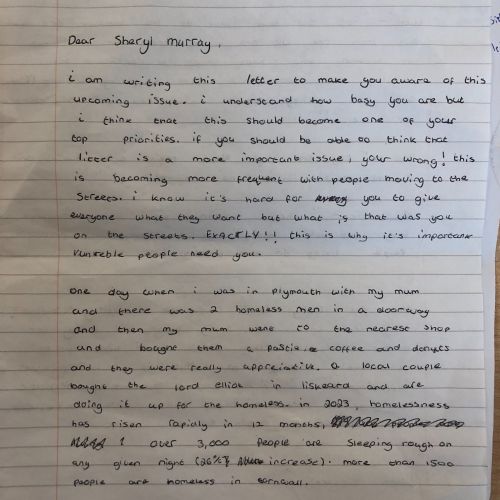 Dear Sheryl Murray,
i am writing this letter to make you aware of this
upcoming issue. i understand how basy you are but
i think that this should become one of your
top priorities. if you should be able to think that
litter is a more important issue, your wrong! this
is becoming more frequent with people moving to the
streets. i know it's hard for you to give
everyone what they want but what if that was you
on the streets. EXACTLY!! this is why it's important
vunreble people need you.
one day when i was in plymouth with my mum
and there was 2 homeless men in a doorway
and then my mum went to the nearest shop
and bought them a pastie, a coffee and donuts
and they were really appreciative. a local couple
bought the lord elliot in liskeard and are
doing it up for the homeless. in 2023, homelessness
has risen rapidly in 12 months,
over 3,000 people are sleeping rough on
any given night (26% increase). more than 1500
people are homeless in cornwall.